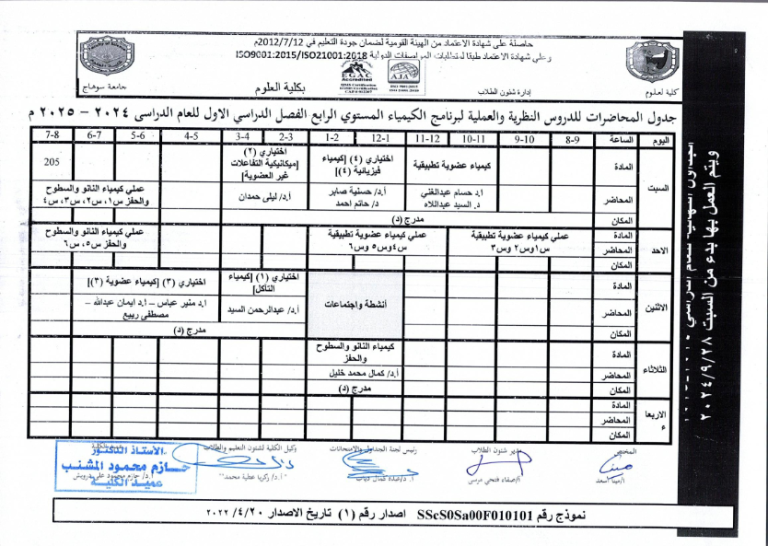 حاصلة على شهادة الاعتماد من الهيئة القومية لضمان جودة التعليم في 2012/7/12م
وعلى شهادة الاعتماد طبقا لمتطلبات المواصفات الدولية ISO9001:2015/ISO21001:2018
EGAC
AJA
كلية العلوم
إدارة شئون الطلاب
بكلية العلوم
جامعة سوهاج
جدول المحاضرات للدروس النظرية والعملية لبرنامج الكيمياء المستوي الرابع الفصل الدراسي الاول للعام الدراسى ٢٠٢٤ – ٢٠٢٥ م
اليوم الساعة 8-9 9-10 10-11 11-12 12-1 1-2 2-3 3-4 4-5 5-6 6-7 7-8
السبت
المادة
كيمياء عضوية تطبيقية
اختياري (٤) [كيمياء فيزيائية (٤)]
اختياري (٢) [ميكانيكية التفاعلات غير العضوية]
205
المحاضر
ا.د حسام عبدالغني
د. السيد عبداللاه
أ.د/ حسنية صابر
د/ حاتم احمد
أ.د/ ليلى حمدان
عملي كيمياء النانو والسطوح والحفز س١، س٢، س٣، س٤
المكان
مدرج (د)
الاحد
المادة
المحاضر
المكان
عملي كيمياء عضوية تطبيقية
س١وس٢ وس٣
عملي كيمياء عضوية تطبيقية
س٤وس٥ وس٦
عملي كيمياء النانو والسطوح والحفز س٥، س٦
الاثنين
المادة
المحاضر
المكان
أنشطة واجتماعات
اختياري (١) [كيمياء التاكل]
أ.د/ عبدالرحمن السيد
اختياري (٣) [كيمياء عضوية (٣)]
ا.د منير عباس – أ.د ايمان عبدالله – مصطفي ربيع
مدرج (د)
الثلاثاء
المادة
كيمياء النانو والسطوح والحفز
المحاضر
أ.د/ كمال محمد خليل
المكان
مدرج (د)
الاربعاء
المادة
المحاضر
المكان
ويتم العمل بها بدء من السبت ٢٠٢٤/٩/٢٨
المختص
مدير شئون الطلاب
وكيل الكلية لشئون التعليم والطلاب
الأستاذ الدكتور
حازم محمود المشنب
عميد الكلية
نموذج رقم SScS0Sa00F010101 اصدار رقم (١) تاريخ الاصدار ٢٠٢٢/٤/٢٠